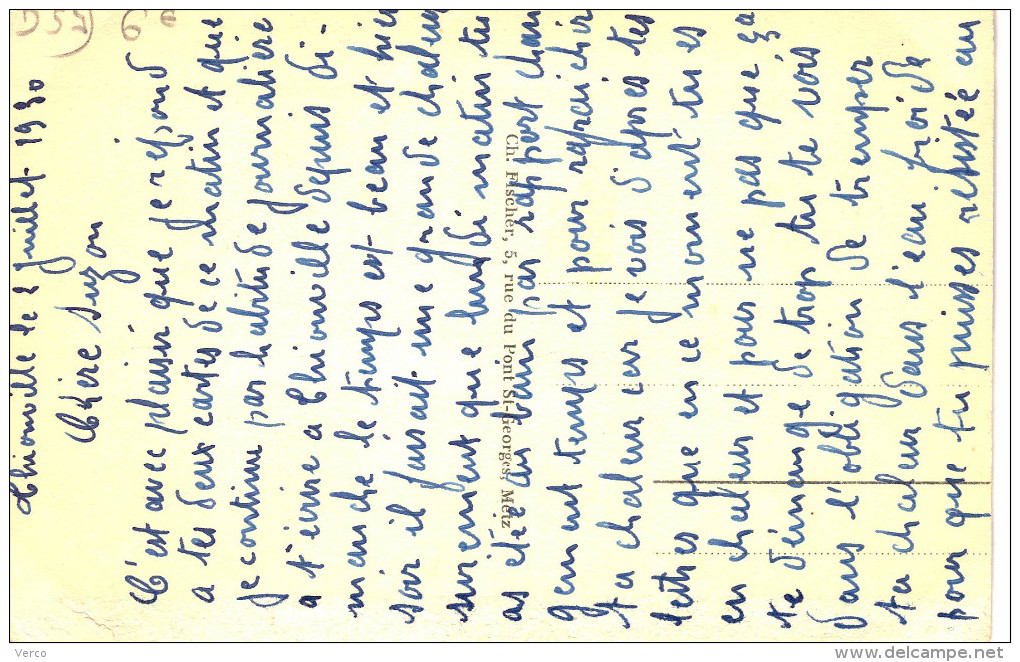 Thionville le 2 juillet 1930
Chère Suzon
C'est avec plaisir que je répond
a tes deux cartes de ce matin et que
je continu par habitude journalière
a t'ecrire a Thionville depuis di-
manche le temps est beau et hier
soir il faisait une grande chaleur
surement que lundi matin tu
as étée au bain par rapport chan
gement temps et pour rafraichir
ta chaleur car je vois d'après tes
lettres que en ce moment tu es
en chaleur et pour ne pas que ça
te démange de trop tu te vois
dans l'obligation de tremper
ta chaleur dans l'eau froide
pour que tu puisses resisté au
Ch. Fischer, 5, rue du Pont St-Georges, Metz
Verco
www.delcampe.net